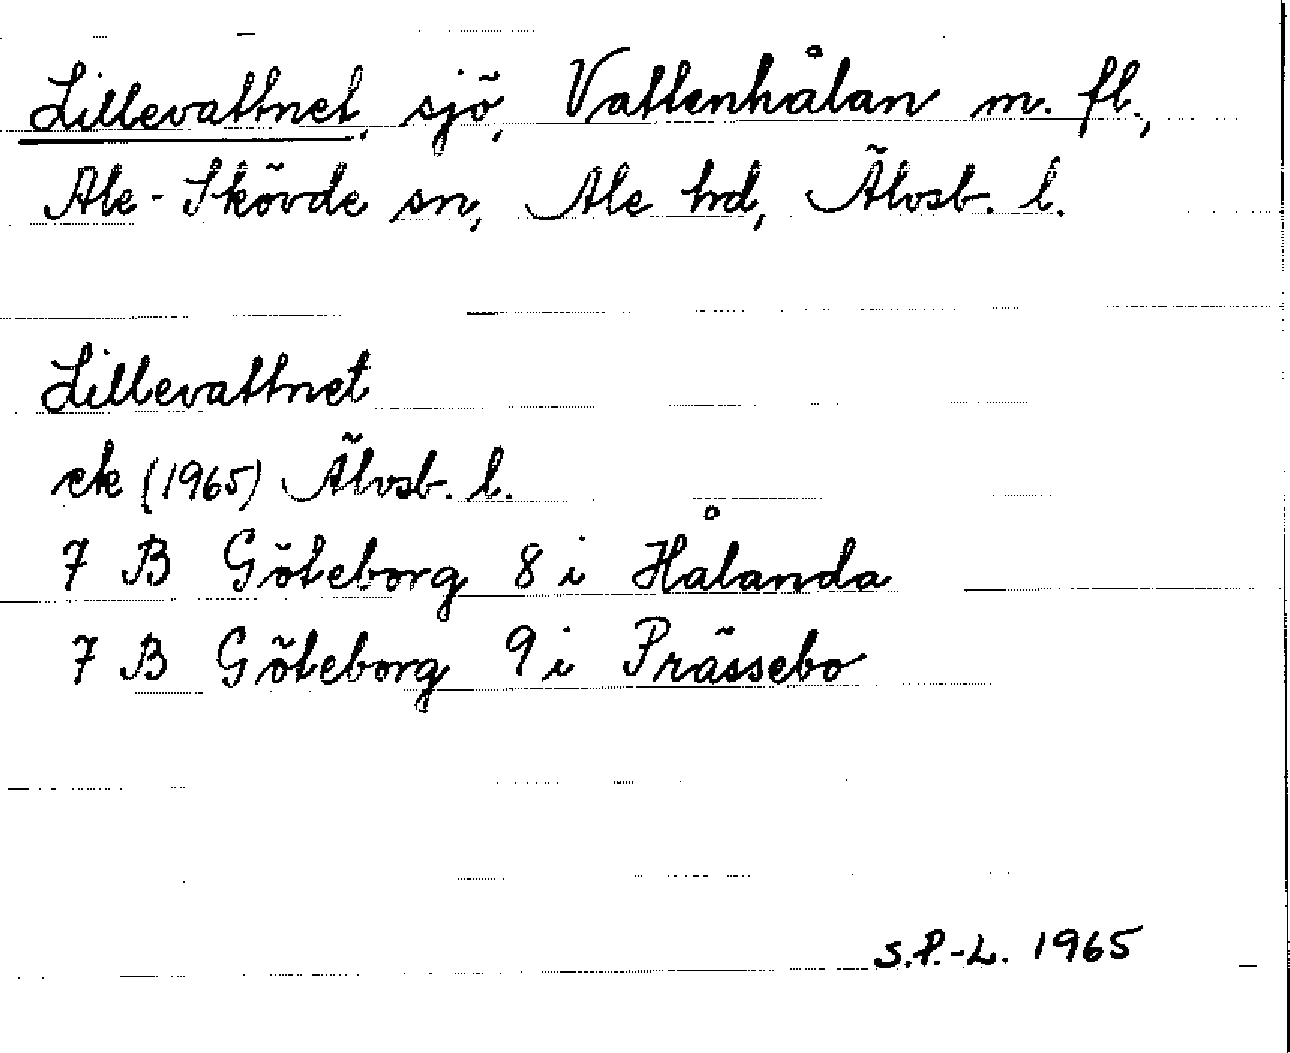 Lillevattnet, sjö, Vattenhålan m. fl.,
Ale-Skövde sn, Ale hd, Älvsb. l.
Lillevattnet
ek (1965) Älvsb. l.
7 B Göteborg 8 i Hålanda
7 B Göteborg 9 i Prässebo
S.P.-L. 1965